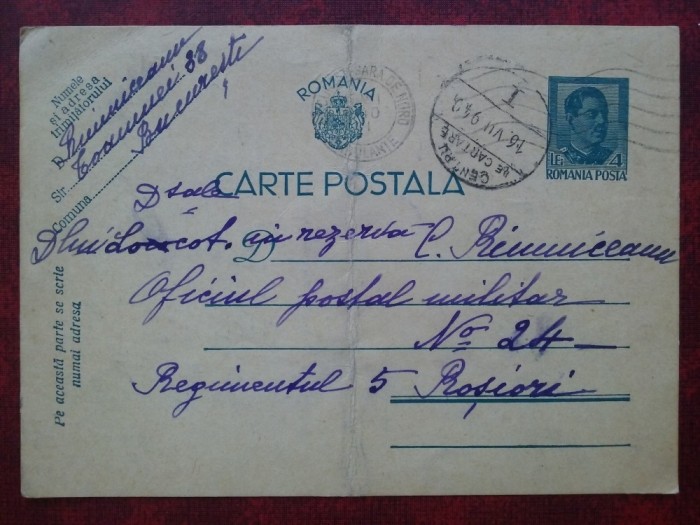 Numele
și adresa
trimițătorului
D. Rimniceanu
Str. Toamnei 88
Comuna București
ROMANIA
GARA DE NORD
CENTRU
DE CARTARE
16 VII 942
I
LEI 4
ROMANIA POSTA
CARTE POSTALA
D sale
Dlui Locot. in rezerva C. Rimniceanu
Oficiul postal militar
No 24
Regimentul 5 Roșiori
Pe această parte se scrie
numai adresa